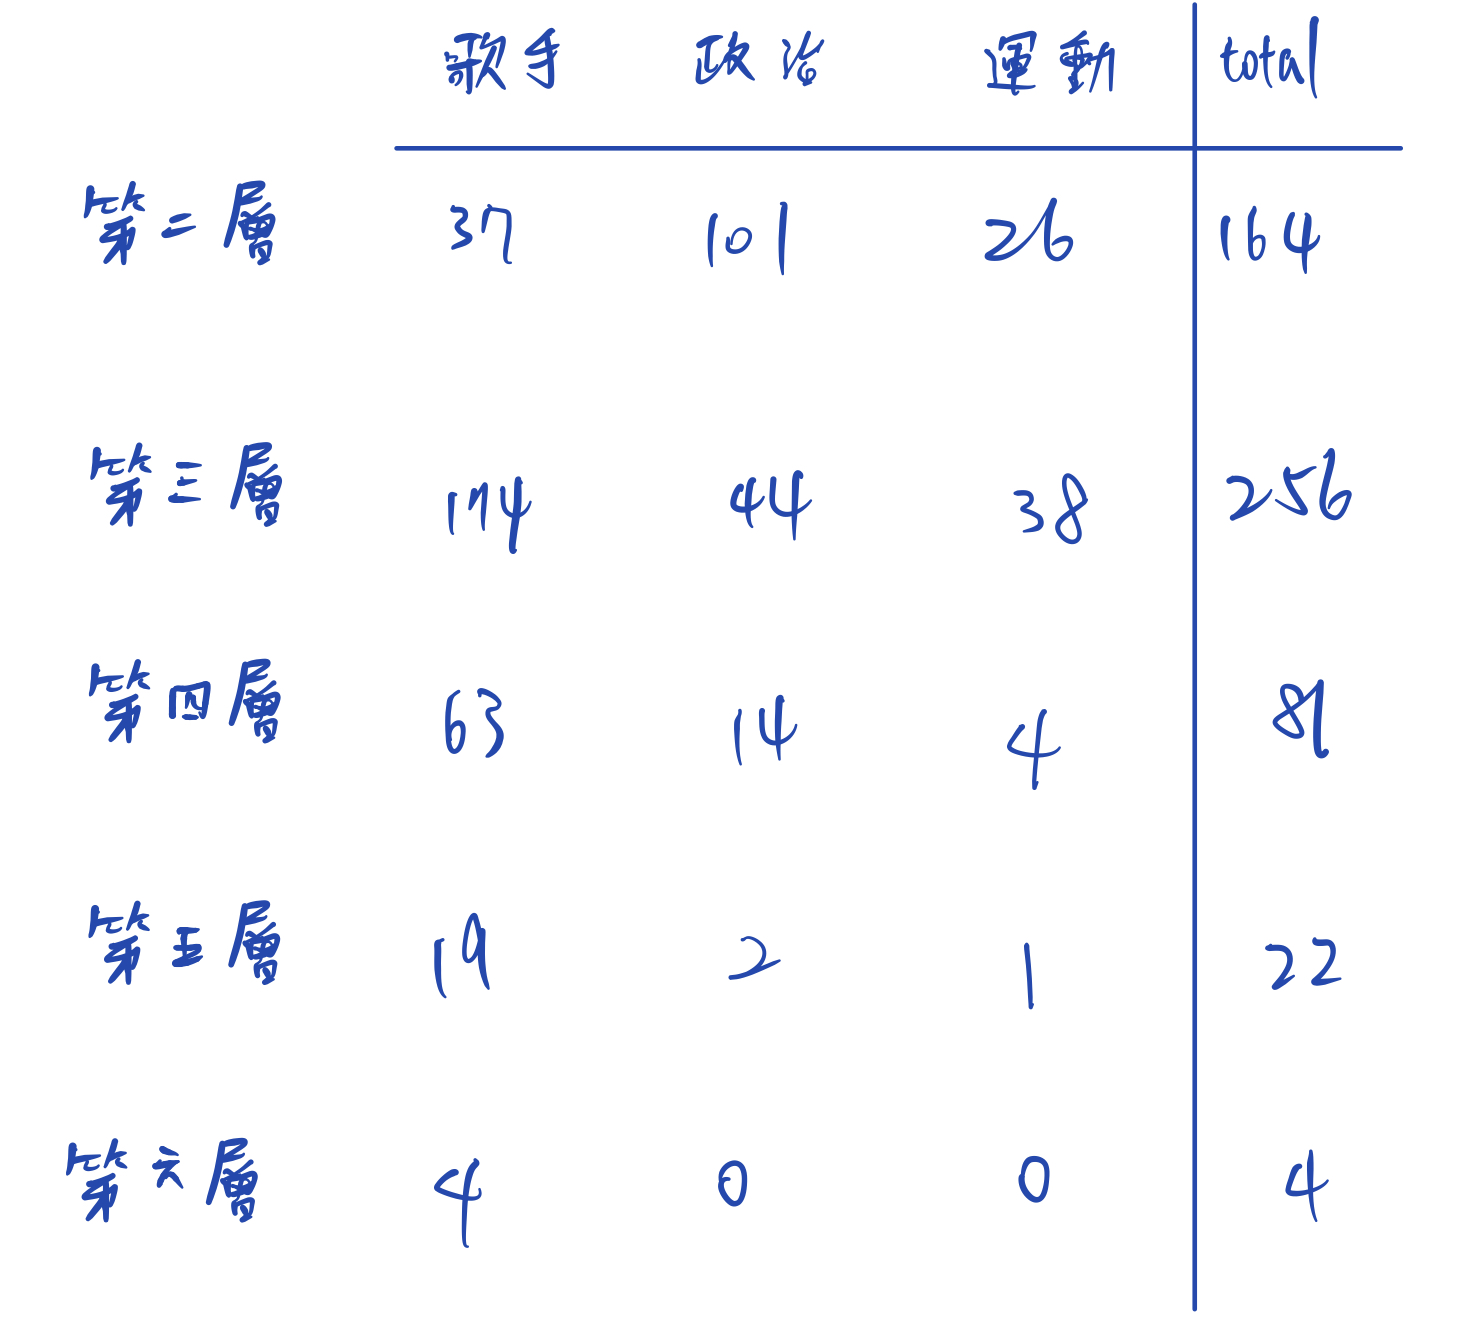 歌手 政治 運動 total
第二層 37 101 26 164
第三層 174 44 38 256
第四層 63 14 4 81
第五層 19 2 1 22
第六層 4 0 0 4